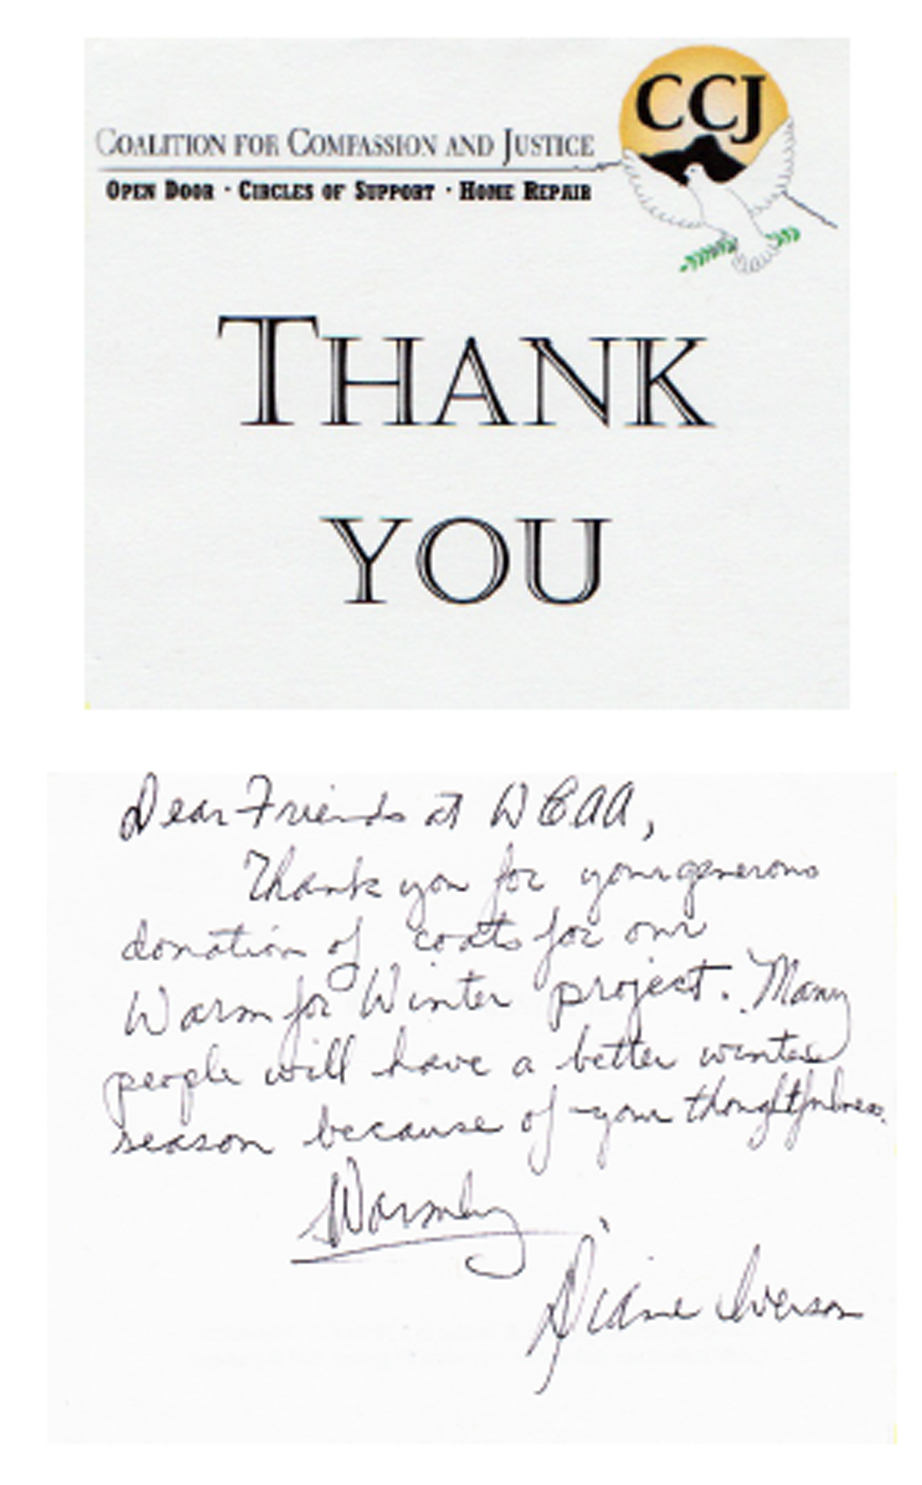 CCJ
Coalition for Compassion and Justice
Open Door · Circles of Support · Home Repair
Thank
you
Dear Friends at WCAA,
Thank you for your generous
donation of coats for our
Warm for Winter project. Many
people will have a better winter
season because of your thoughtfulness.
Warmly,
Diane Iverson